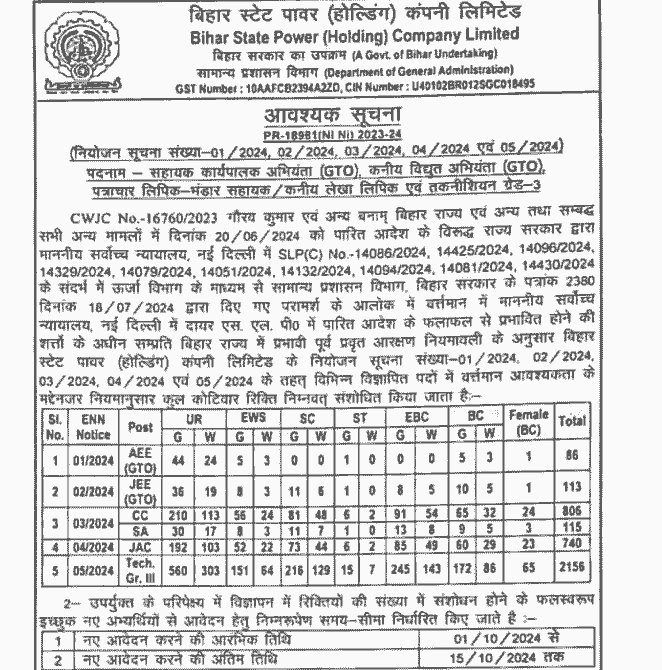 बिहार स्टेट पावर (होल्डिंग) कंपनी लिमिटेड
Bihar State Power (Holding) Company Limited
बिहार सरकार का उपक्रम (A Govt. of Bihar Undertaking)
सामान्य प्रशासन विभाग (Department of General Administration)
GST Number : 10AAFCB2394A2ZD, CIN Number : U40102BR012SGC018495
आवश्यक सूचना
PR-18981(NI NI) 2023-24
(नियोजन सूचना संख्या–01/2024, 02/2024, 03/2024, 04/2024 एवं 05/2024)
पदनाम – सहायक कार्यपालक अभियंता (GTO), कनीय विद्युत अभियंता (GTO),
पत्राचार लिपिक–भंडार सहायक/कनीय लेखा लिपिक एवं तकनीशियन ग्रेड–3
CWJC No.-16760/2023 गौरव कुमार एवं अन्य बनाम् बिहार राज्य एवं अन्य तथा सम्बद्ध
सभी अन्य मामलों में दिनांक 20/06/2024 को पारित आदेश के विरूद्ध राज्य सरकार द्वारा
माननीय सर्वोच्च न्यायालय, नई दिल्ली में SLP(C) No.-14086/2024, 14425/2024, 14096/2024,
14329/2024, 14079/2024, 14051/2024, 14132/2024, 14094/2024, 14081/2024, 14430/2024
के संदर्भ में ऊर्जा विभाग के माध्यम से सामान्य प्रशासन विभाग, बिहार सरकार के पत्रांक 2380
दिनांक 18/07/2024 द्वारा दिए गए परामर्श के आलोक में वर्त्तमान में माननीय सर्वोच्च
न्यायालय, नई दिल्ली में दायर एस. एल. पी० में पारित आदेश के फलाफल से प्रभावित होने की
शर्त्तों के अधीन सम्प्रति बिहार राज्य में प्रभावी पूर्व प्रवृत आरक्षण नियमावली के अनुसार बिहार
स्टेट पावर (होल्डिंग) कंपनी लिमिटेड के नियोजन सूचना संख्या–01/2024, 02/2024,
03/2024, 04/2024 एवं 05/2024 के तहत् विभिन्न विज्ञापित पदों में वर्त्तमान आवश्यकता के
मद्देनजर नियमानुसार कुल कोटिवार रिक्ति निम्नवत् संशोधित किया जाता है:–
Sl. No. ENN Notice Post UR EWS SC ST EBC BC Female (BC) Total
G W G W G W G W G W G W
1 01/2024 AEE (GTO) 44 24 5 3 0 0 1 0 0 0 5 3 1 86
2 02/2024 JEE (GTO) 36 19 8 3 11 6 1 0 8 5 10 5 1 113
3 03/2024 CC 210 113 56 24 81 48 6 2 91 54 65 32 24 806
SA 30 17 8 3 11 7 1 0 13 8 9 5 3 115
4 04/2024 JAC 192 103 52 22 73 44 6 2 85 49 60 29 23 740
5 05/2024 Tech. Gr. III 560 303 151 64 216 129 15 7 245 143 172 86 65 2156
2– उपर्युक्त के परिपेक्ष्य में विज्ञापन में रिक्तियों की संख्या में संशोधन होने के फलस्वरूप
इच्छुक नए अभ्यर्थियों से आवेदन हेतु निम्नरूपेण समय–सीमा निर्धारित किए जाते है :–
1 नए आवेदन करने की आरंभिक तिथि 01/10/2024 से
2 नए आवेदन करने की अंतिम तिथि 15/10/2024 तक